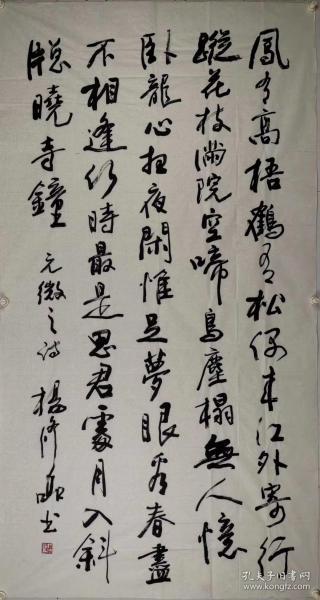 鳳有高梧鶴有松偶来江外寄行
蹤花枝滿院空啼鳥塵榻無人憶
臥龍心想夜閑惟足夢眼看春盡
不相逢何時最是思君處月入斜
牕曉寺鐘 元微之詩 楊修书
孔夫子旧书网